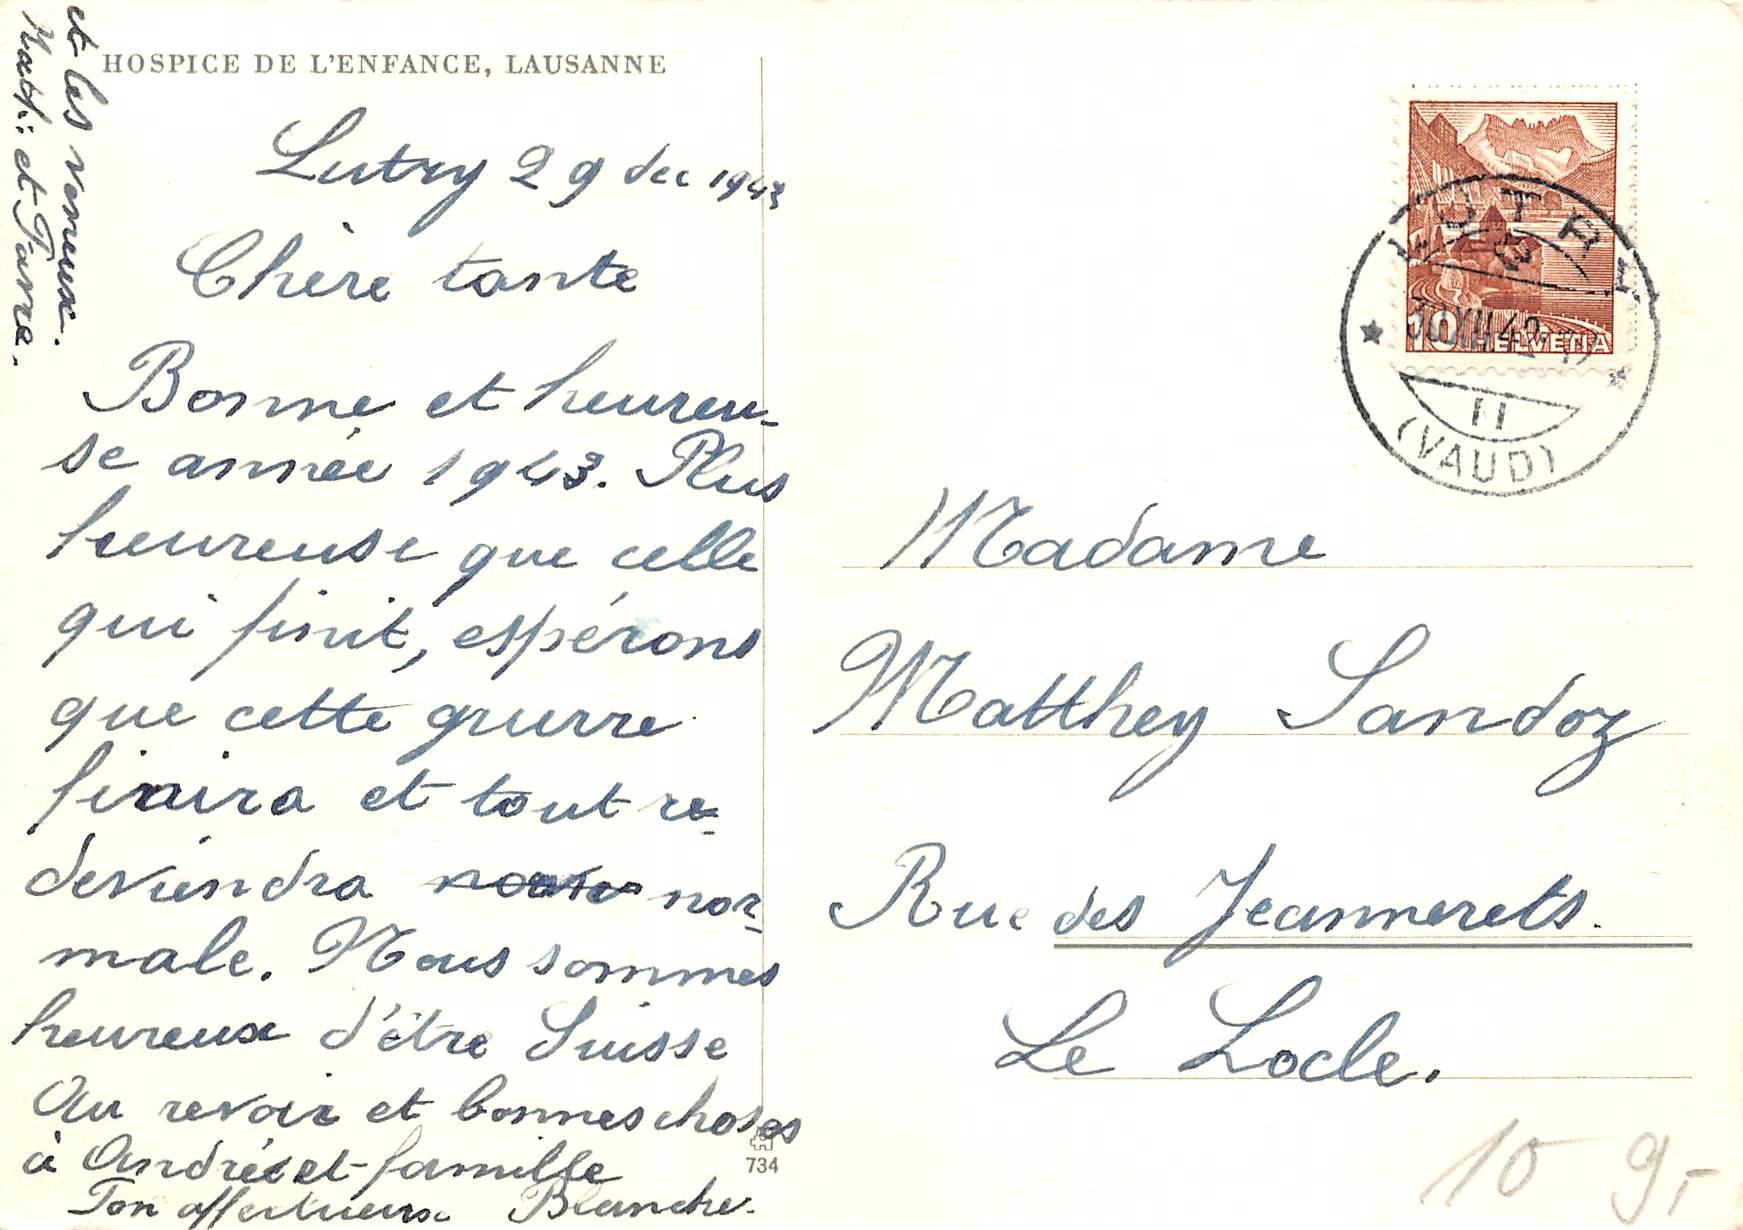 HOSPICE DE L'ENFANCE, LAUSANNE
Lutry 29 dec 1942
Chère tante
Bonne et heureu-
se année 1943. Plus
heureuse que celle
qui finit, espérons
que cette guerre
finira et tout re-
deviendra nor-
male. Nous sommes
heureux d'être Suisse
Au revoir et bonnes choses
à Andrée et famille
Ton affectueuse Blanche.
et les
et
LUTRY
30.XII.42
11
(VAUD)
10 HELVETIA
Madame
Matthey Sandoz
Rue des Jeannerets.
Le Locle.
734
10 9,-